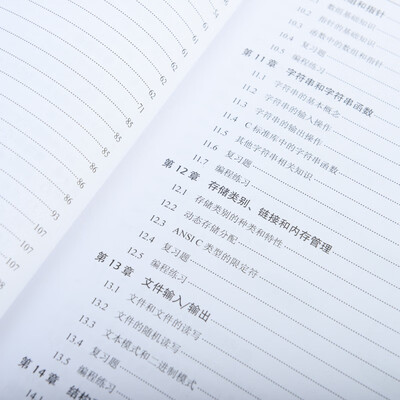 62
62
62
71
85
85
86
86
86
93
107
107
107
组和指针
10.1 数组基础知识
10.2 指针的基础知识
10.3 函数中的数组和指针
10.4 复习题
10.5 编程练习
第11章 字符串和字符串函数
11.1 字符串的基本概念
11.2 字符串的输入操作
11.3 字符串的输出操作
11.4 C标准库中的字符串函数
11.5 其他字符串相关知识
11.6 复习题
11.7 编程练习
第12章 存储类别、链接和内存管理
12.1 存储类别的种类和特性
12.2 动态存储分配
12.3 ANSI C类型的限定符
12.4 复习题
12.5 编程练习
第13章 文件输入/输出
13.1 文件和文件的读写
13.2 文件的随机读写
13.3 文本模式和二进制模式
13.4 复习题
13.5 编程练习
第14章 结构
14.1